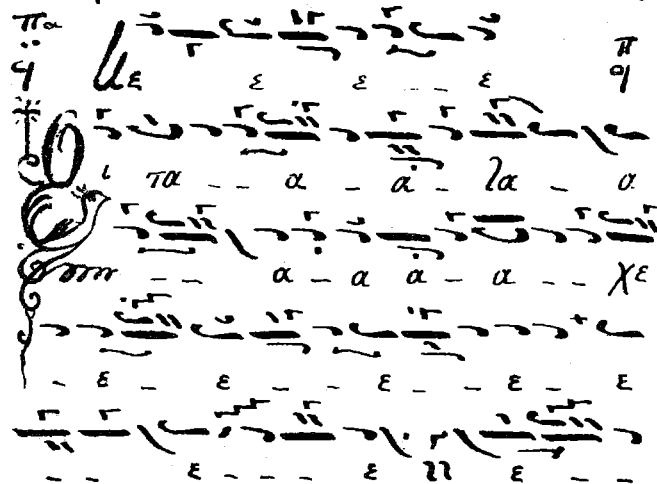 Πα
ε ε ε - - ε
ι τα - - α - α - λα - α
- - α - α α - α - - χε
- ε - ε - - ε - - ε - ε
- - ε - - - ε ε - -